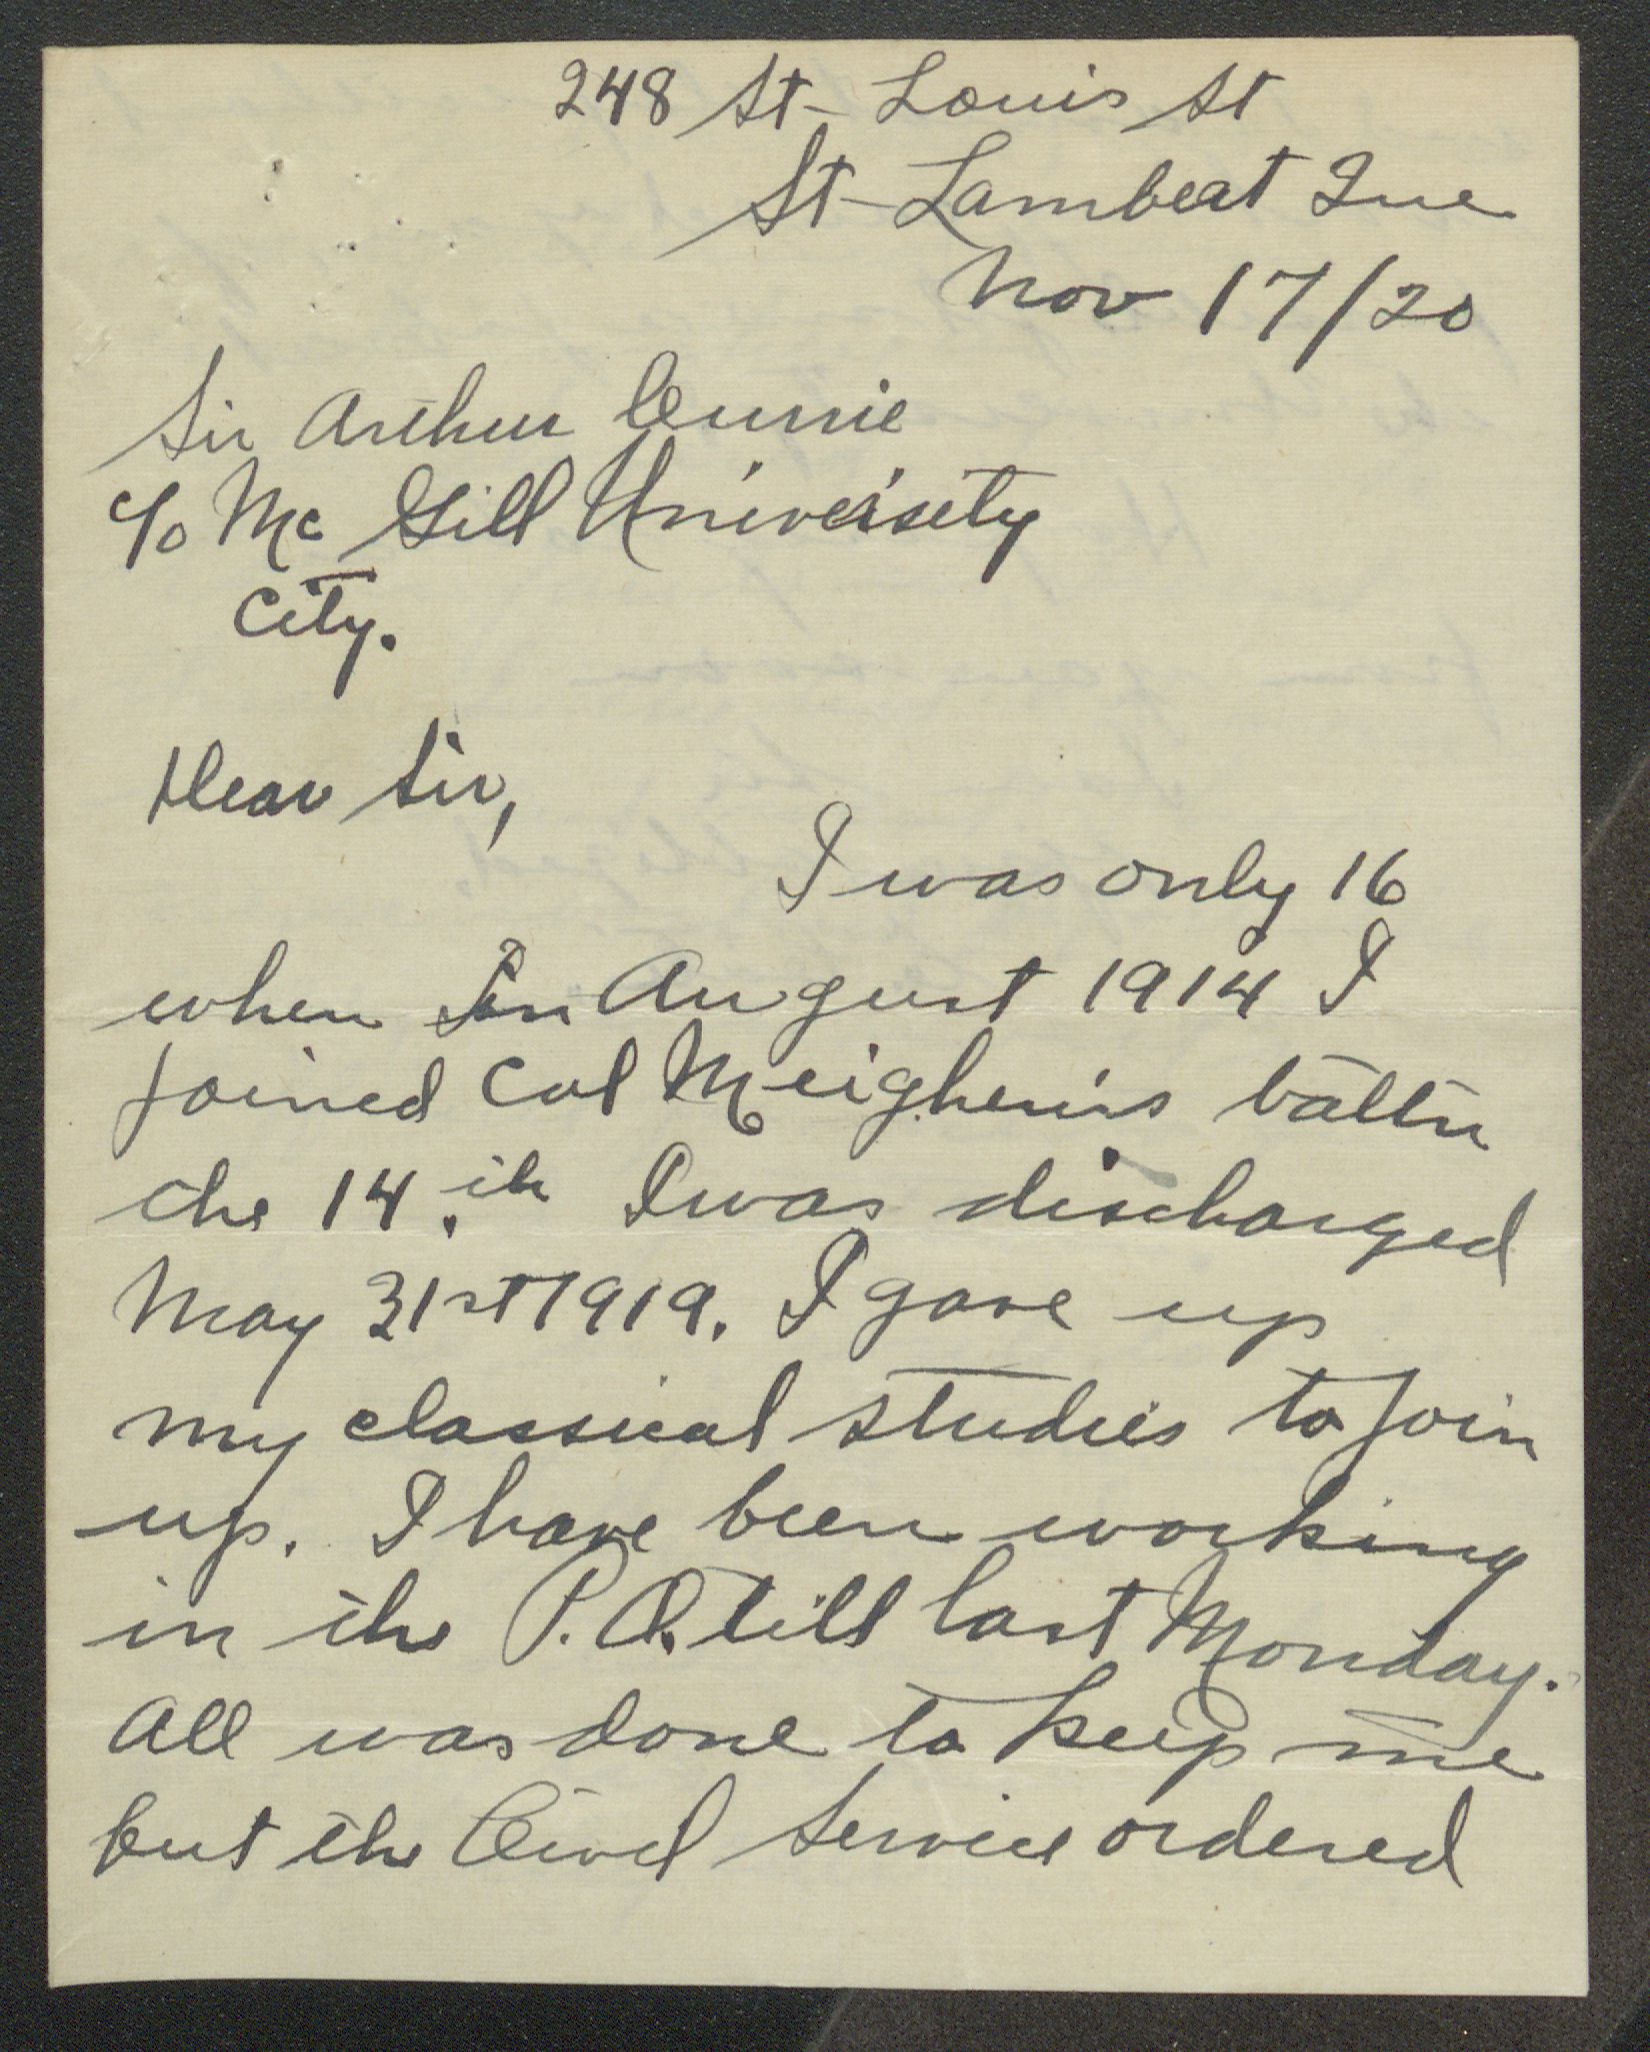 248 St-Louis St
St-Lambert Que
Nov 17/20
Sir Arthur Currie
c/o Mc Gill University
City.
Dear Sir,
I was only 16
when in August 1914 I
joined Col Meighen's battn
the 14.th I was discharged
May 31st 1919. I gave up
my classical studies to join
up. I have been working
in the P.O. till last Monday.
All was done to keep me
but the Civil Service ordered